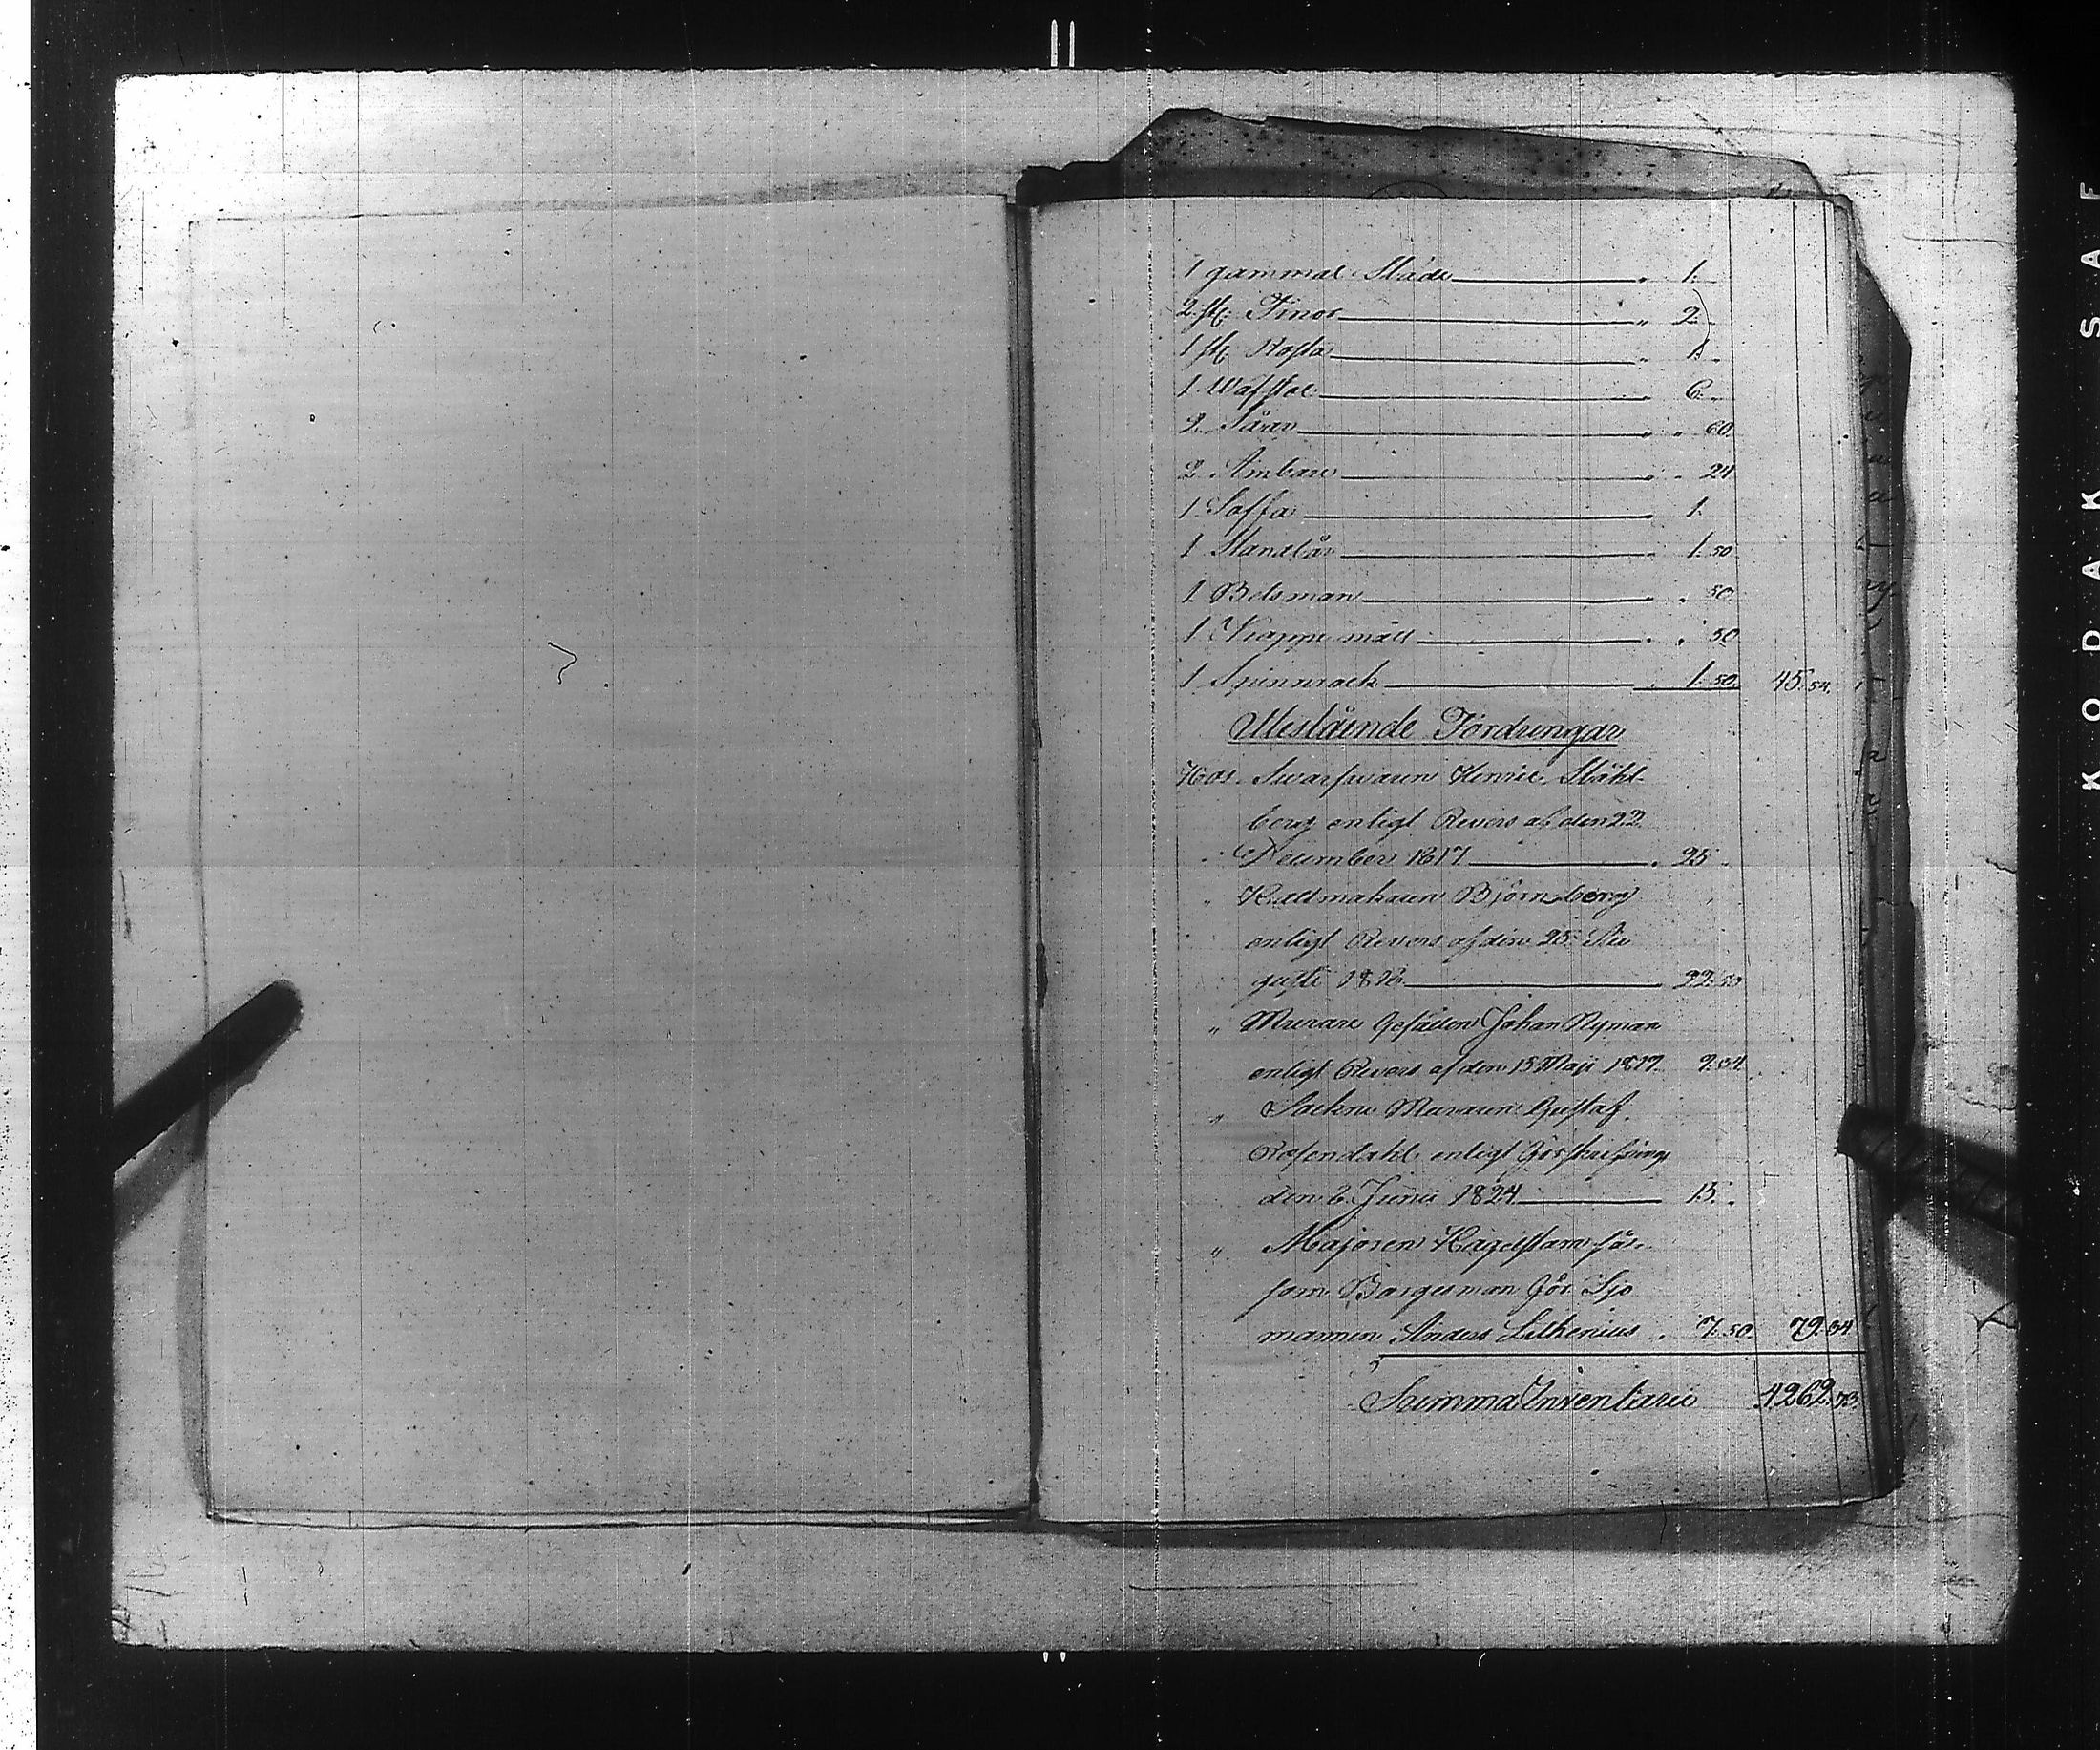 1 gammal Släde „ 1.
2 st: Tinor „ 2. „
1 st: Kasta „ 1. „
1 Wäfstol „ 6. „
2 Såar „ „ 60.
2 Ämbare „ „ 24
1 Soffa „ 1.
1 Handbår „ 1. 50
1 Betsman „ „ 50.
1 Kappe mått „ „ 50
1 Spinnrock „ 1. 50. 45. 54.
Utestående Fordringar
Hos Swarfwaren Henric Ståhl-
berg enligt Revers af den 22
December 1817 „ 25 „
„ Hattmakaren Björnberg
enligt Revers af den 25 Au
gusti 1816 „ 22. 50
„ Murare Gesällen Johan Nyman
enligt Revers af den 15 Maji 1817. 9. 04
„ Sockne Muraren Gustaf
Rosendahl enligt förskrifning
den 6 Junii 1824 15. „
„ Majoren Hägelstam så-
som Borgesman för Sjo
mannen Anders Lithenius „ 7. 50. 79. 04
Summa Inventarii 4262. 73.
KODAK SAFE